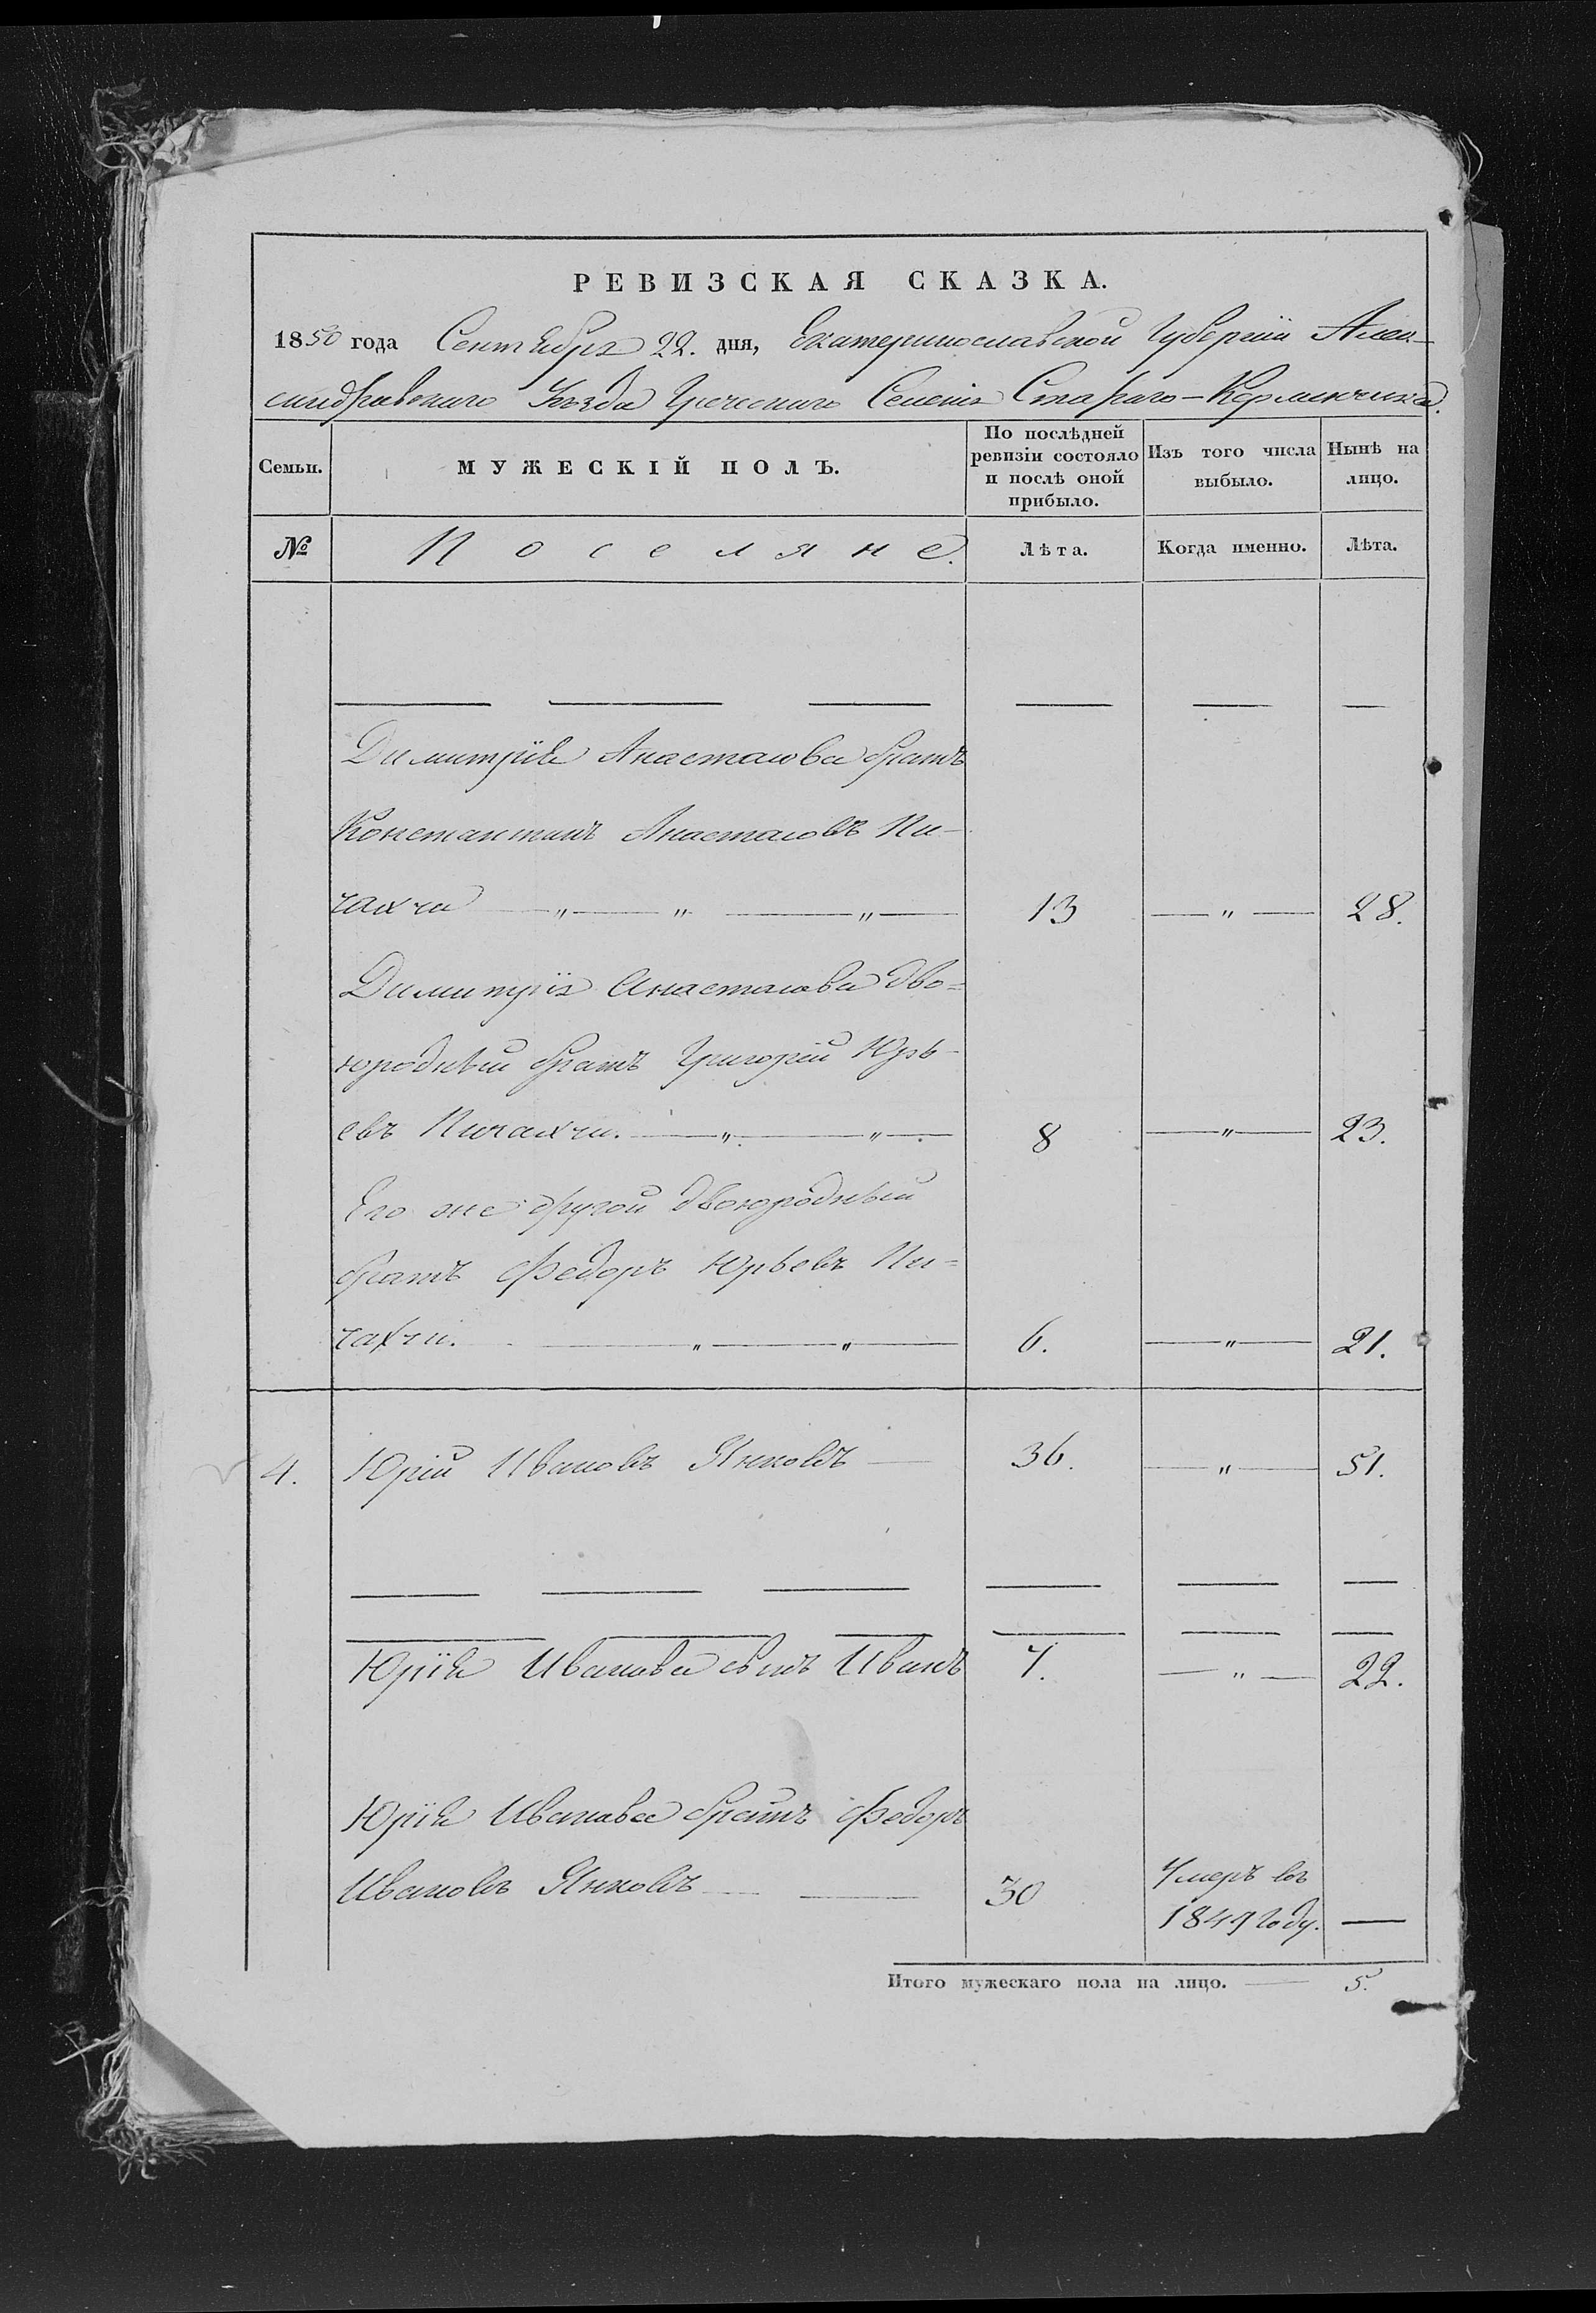 РЕВИЗСКАЯ СКАЗКА.
1850 года Сентября 22. дня, Екатеринославской Губернiи Алек-
сандровскаго Уѣзда Греческаго Селенiя Стараго-Керменчика.
Семьи.
МУЖЕСКIЙ ПОЛЪ.
По послѣдней ревизiи состояло и послѣ оной прибыло.
Изъ того числа выбыло.
Нынѣ на лицо.
№ Поселяне. Лѣта. Когда именно. Лѣта.
Димитрiя Анастасова братъ
Константинъ Анастасовъ Пи-
чахчи — „ — „ — „ — 13 — „ — 28.
Димитрiя Анастасова дво=
юродный братъ Григорiй Юрь-
евъ Пичахчи. — „ — „ — 8 — „ — 23.
Его же другой двоюродный
братъ Федоръ Юрьевъ Пи=
чахчи. — „ — „ — 6. — „ — 21.
4. Юрiй Ивановъ Янковъ — 36. — „ — 51.
Юрiя Иванова сынъ Иванъ 7. — „ — 22.
Юрiя Иванова братъ Федоръ
Ивановъ Янковъ — — 30 Умеръ въ
1849 году. —
Итого мужескаго пола на лицо. — 5.